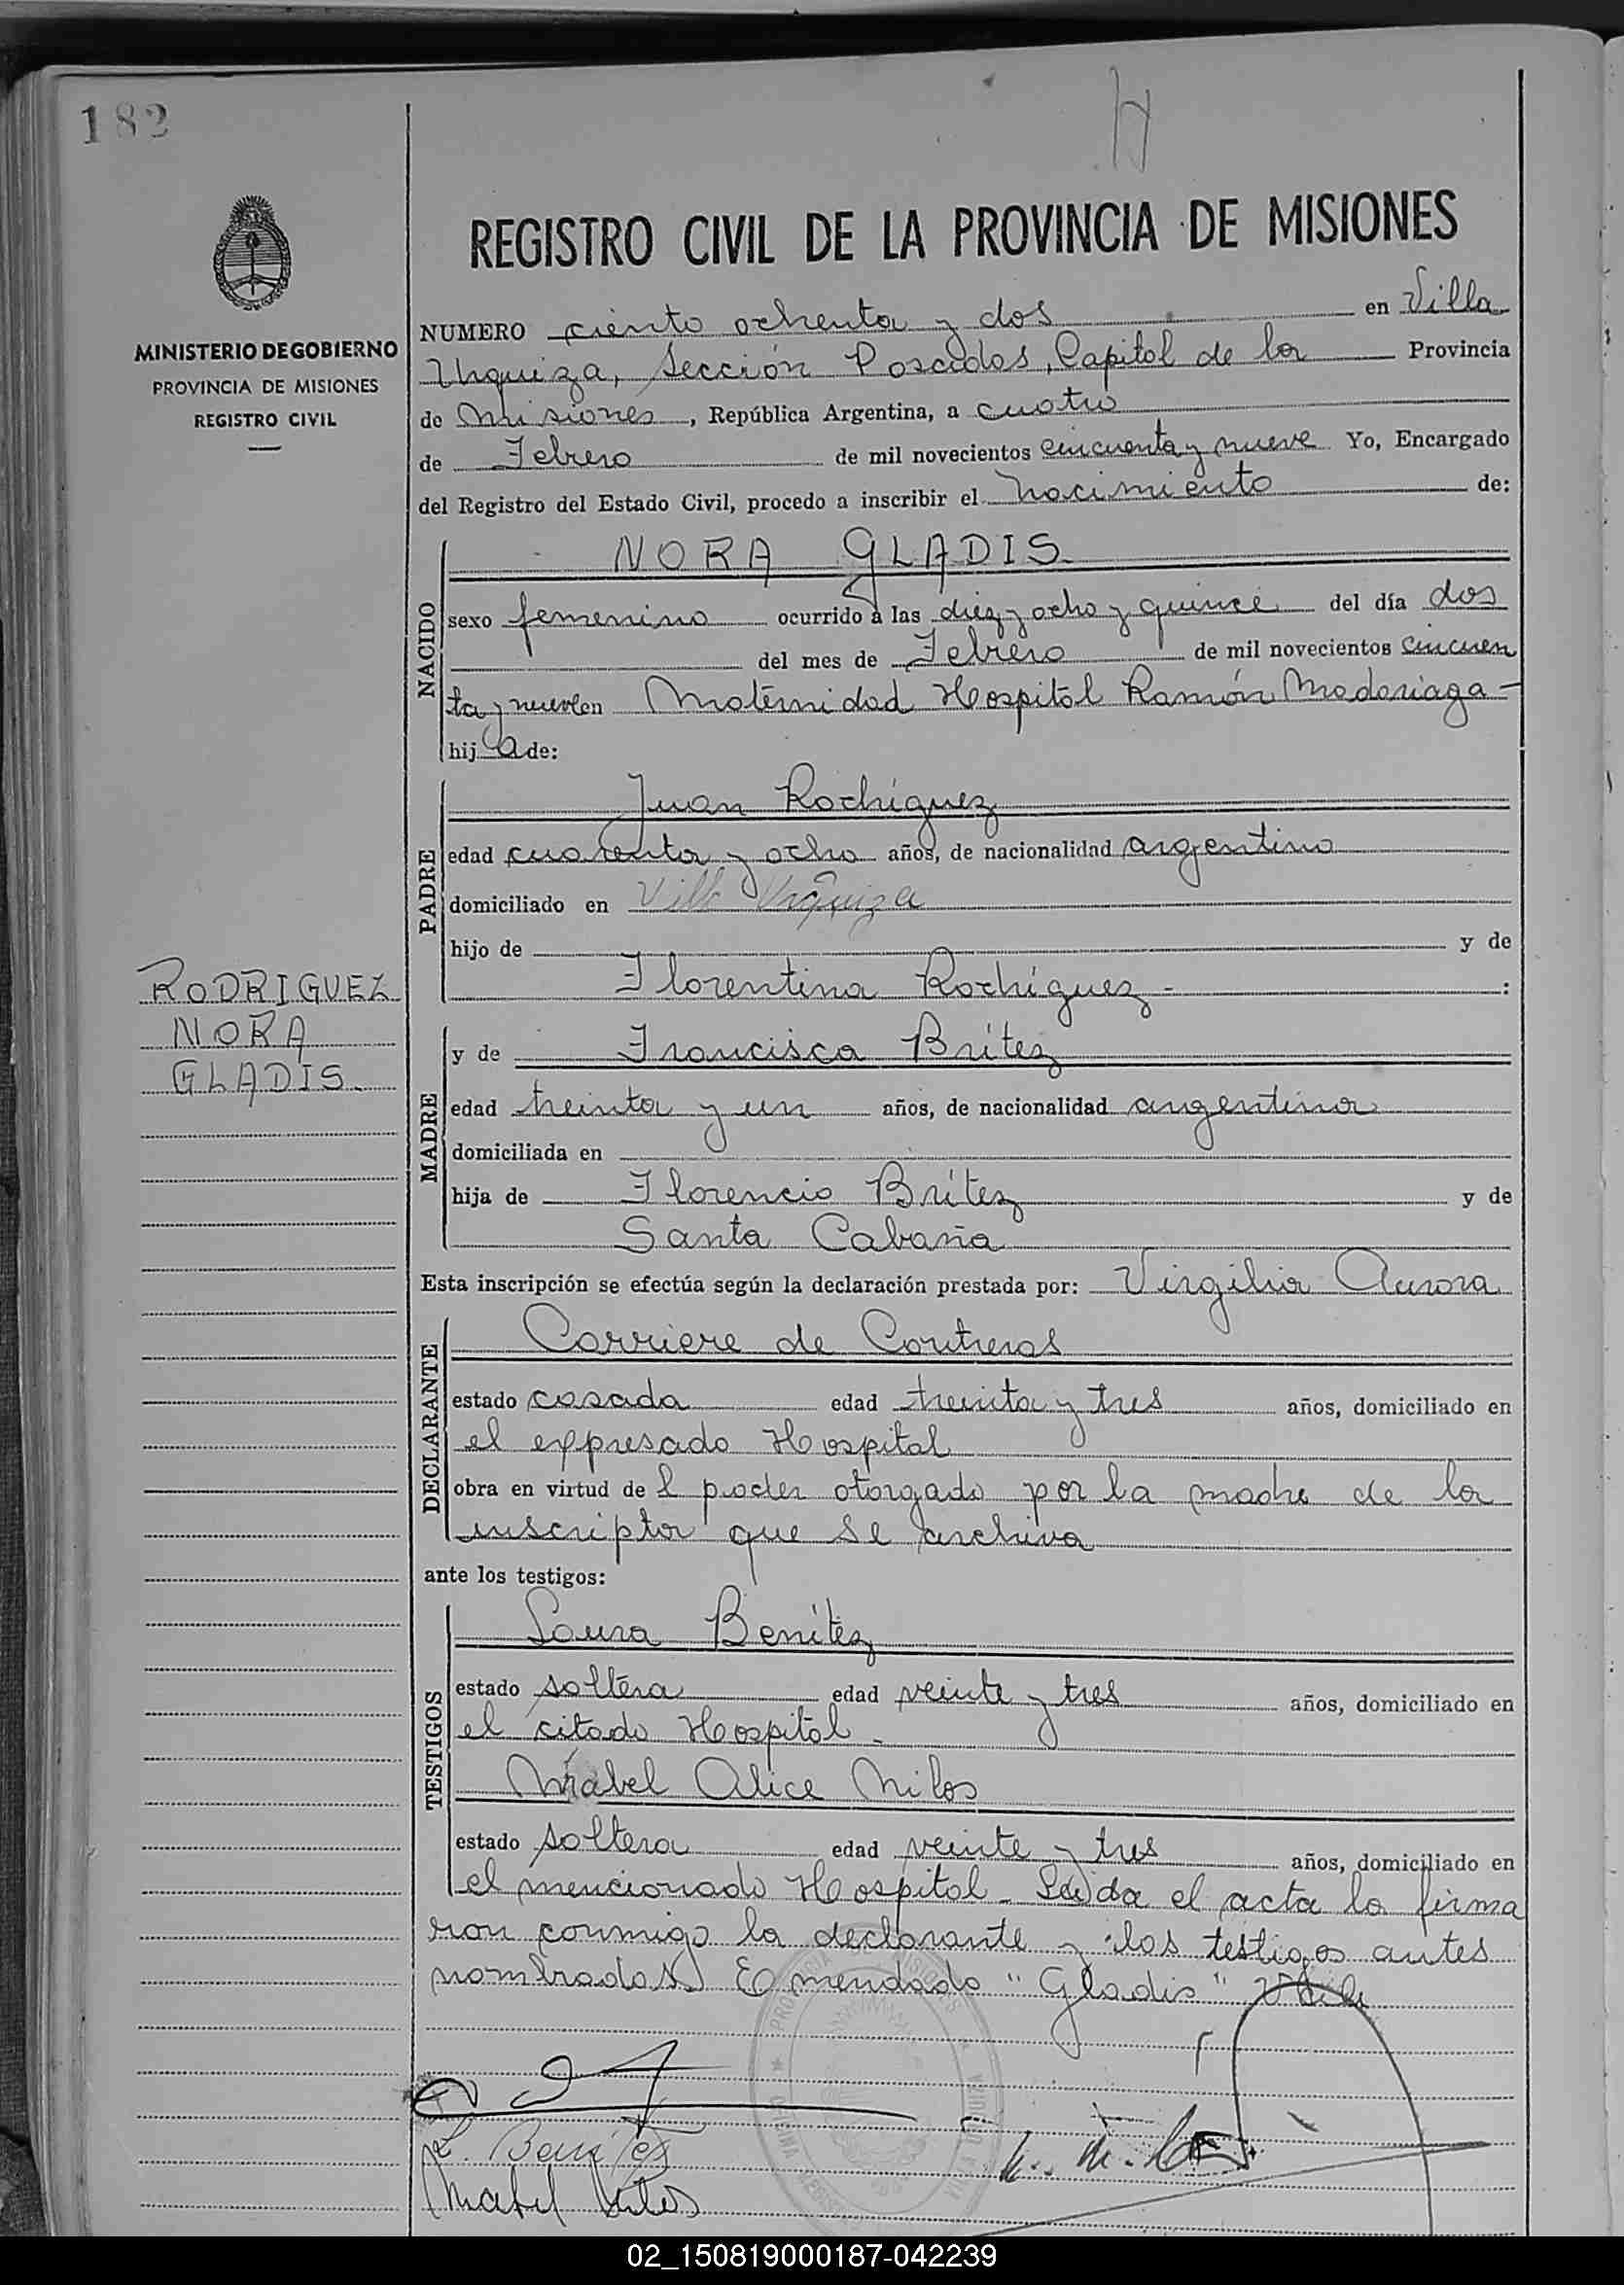 182
H
MINISTERIO DE GOBIERNO
PROVINCIA DE MISIONES
REGISTRO CIVIL
REGISTRO CIVIL DE LA PROVINCIA DE MISIONES
NUMERO ciento ochenta y dos en Villa
Urquiza, Sección Posadas, Capital de la Provincia
de Misiones, República Argentina, a cuatro
de Febrero de mil novecientos cincuenta y nueve Yo, Encargado
del Registro del Estado Civil, procedo a inscribir el nacimiento de:
NACIDO
NORA GLADIS
sexo femenino ocurrido a las diez y ocho y quince del día dos
del mes de Febrero de mil novecientos cincuen
ta y nueve en Maternidad Hospital Ramón Madariaga -
hij a de:
PADRE
Juan Rodríguez
edad cuarenta y ocho años, de nacionalidad argentino
domiciliado en Villa Urquiza
hijo de y de
Florentina Rodríguez - :
RODRIGUEZ
NORA
GLADIS.
MADRE
y de Francisca Brítez
edad treinta y un años, de nacionalidad argentina
domiciliada en
hija de Florencio Brítez y de
Santa Cabaña
Esta inscripción se efectúa según la declaración prestada por: Virgilia Aurora
DECLARANTE
Corriere de Contreras
estado casada edad treinta y tres años, domiciliado en
el expresado Hospital
obra en virtud de l poder otorgado por la madre de la
inscripta que se archiva
ante los testigos:
TESTIGOS
Laura Benítez
estado soltera edad veinte y tres años, domiciliado en
el citado Hospital -
Mabel Alice Milos
estado soltera edad veinte y tres años, domiciliado en
el mencionado Hospital - Leída el acta la firma
ron conmigo la declarante y los testigos antes
nombrados. Enmendado "Gladis" Vale
L. Benítez
Mabel Milos
02_150819000187-042239